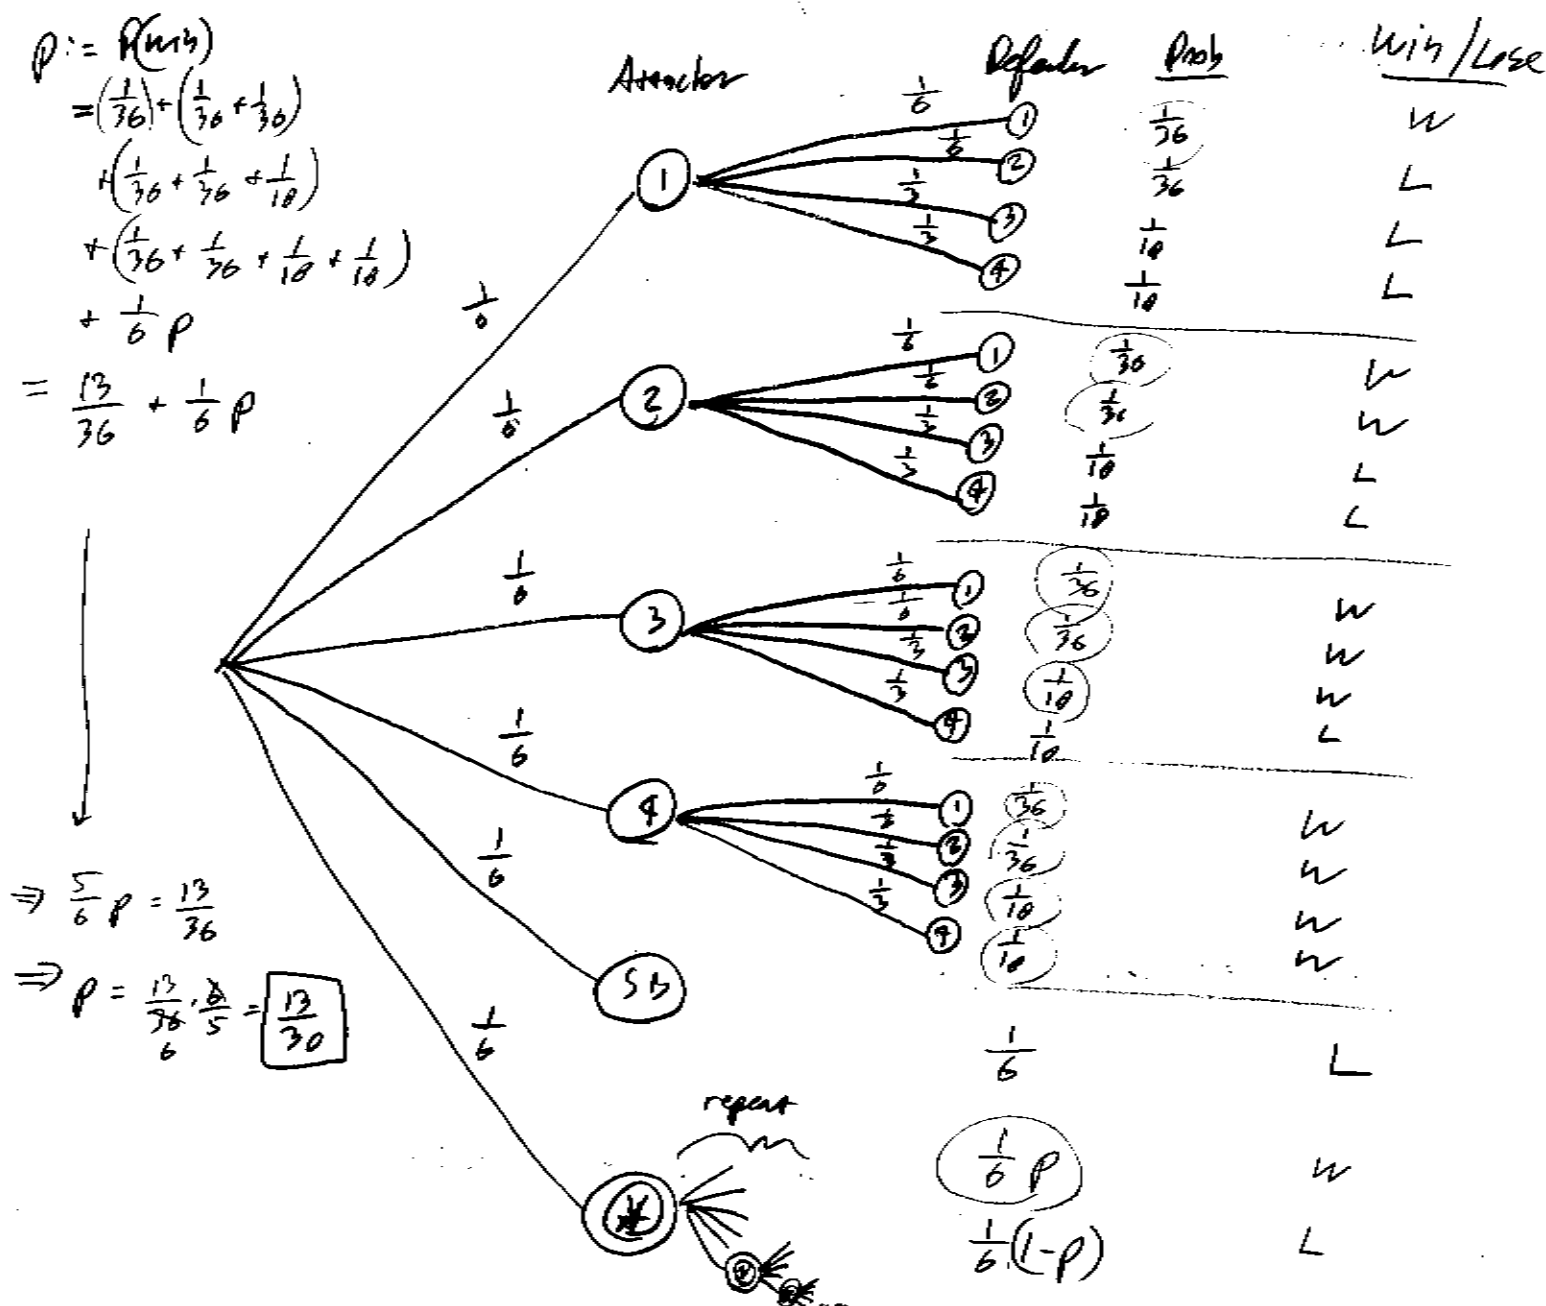 p := P(win)
= (1/36) + (1/36 + 1/36)
+ (1/36 + 1/36 + 1/18)
+ (1/36 + 1/36 + 1/18 + 1/18)
+ 1/6 p
= 13/36 + 1/6 p
⇒ 5/6 p = 13/36
⇒ p = 13/36 · 6/5 = 13/30
6
Attacker Defender Prob Win/Lose
1/6 1
1/6 1 1/36 W
1/6 2 1/36 L
1/3 3 1/18 L
1/3 4 1/18 L
1/6 2
1/6 1 1/36 W
1/6 2 1/36 W
1/3 3 1/18 L
1/3 4 1/18 L
1/6 3
1/6 1 1/36 W
1/6 2 1/36 W
1/3 3 1/18 W
1/3 4 1/18 L
1/6 4
1/6 1 1/36 W
1/6 2 1/36 W
1/3 3 1/18 W
1/3 4 1/18 W
1/6 SB 1/6 L
repeat
1/6 1/6 p W
1/6 (1-p) L